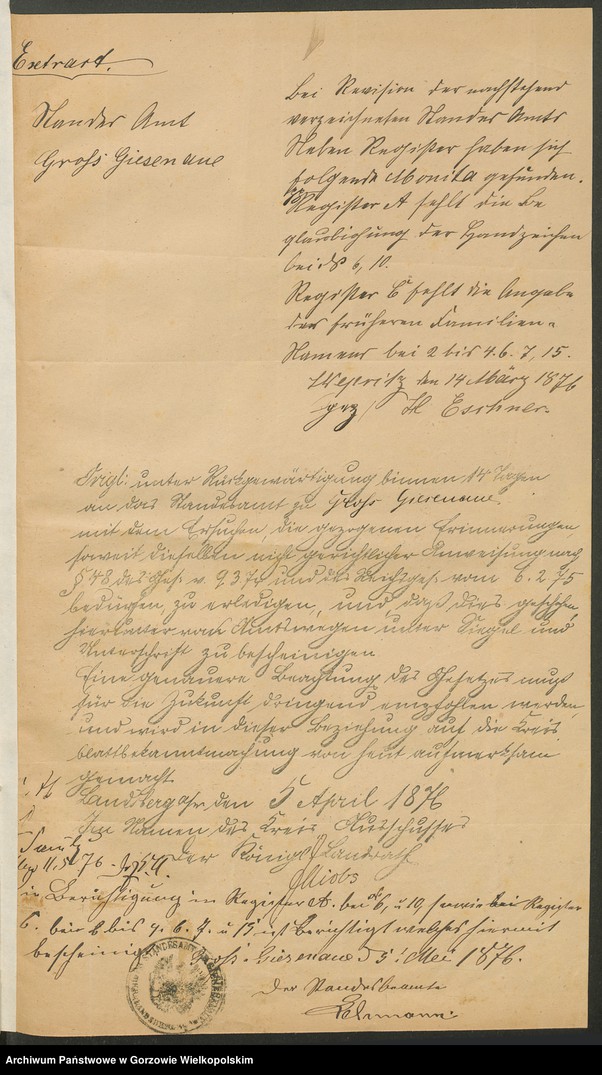 Extract.
Standes Amt
Groß Giesenaue
Bei Revision der nachstehend
verzeichneten Standes Amts
Neben Register haben sich
folgende Monita gefunden.
Register A fehlt die Be
glaubigung der Handzeichen
bei 6, 10.
Register B fehlt die Angabe
des früheren Familien-
Namens bei 2 bis 4. 6. 7, 15.
den 14 März 1876
gez
Origl: unter Rückgewärtigung binnen 14 Tagen
an das Standesamt zu Groß Giesenaue
mit dem Ersuchen, die gezogenen Erinnerungen,
soweit dieselben nicht gerichtlicher Anweisung nach
§ 48 des Ges. v. 9. 3 74 und des Reichsges. vom 6. 2. 75
bedürfen, zu erledigen, und, daß dies geschehen,
hierunter von Amtswegen unter Siegel und
Unterschrift zu bescheinigen
Eine genauere Beachtung des Gesetzes muß
für die Zukunft dringend empfohlen werden,
und wird in dieser Beziehung auf die Kreis
blattsbekanntmachung von heut aufmerksam
gemacht
Landsberg a/W den 5 April 1876
Im Namen des Kreis Ausschusses
Der Königl. Landrath
Jacobs
11. 5 76
in Berichtigung in Register A. bei 6, u 10, sowie bei Register
bei 2 bis 4. 6. 7. u 15 ist berichtigt welches hiermit
bescheinigt Groß Giesenaue d 5. Mai 1876.
Der Standesbeamte
Lehmann.
STANDESAMT
Archiwum Państwowe w Gorzowie Wielkopolskim